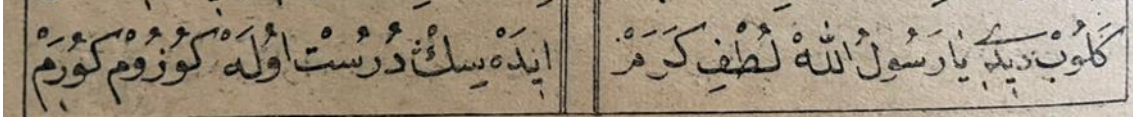 كَلُوبْ دِيدِى يَا رَسُولُ اللّٰهْ لُطْفِ كَرَمْ اِيدَهْ سِڭْ دُرُسْتْ اوُلَهْ كُوزُومْ كُورَمْ